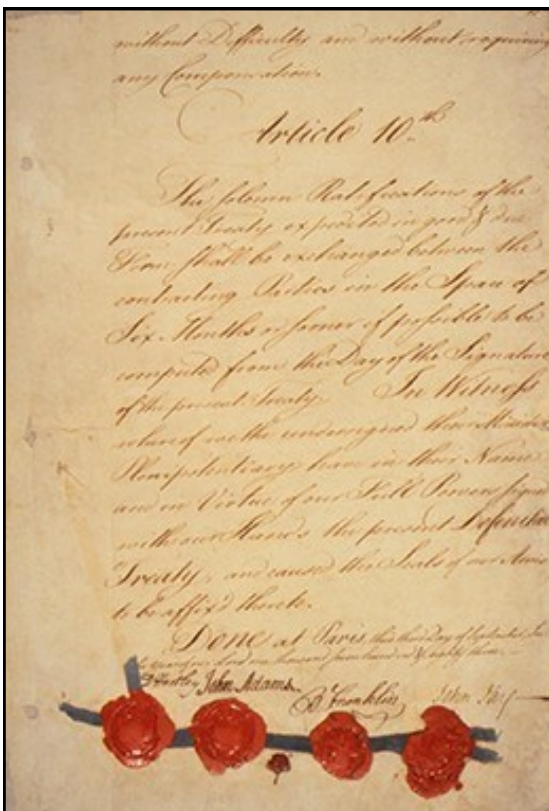 without Difficulty and without requiring
any Compensation.
Article 10.th
The solemn Ratifications of the
present Treaty expedited in good & due
Form shall be exchanged between the
contracting Parties in the Space of
Six Months or sooner if possible to be
computed from the Day of the Signature
of the present Treaty. In Witness
whereof we the undersigned their Minister
Plenipotentiary have in their Name
and in Virtue of our Full Powers signed
with our Hands the present Definitive
Treaty, and caused the Seals of our Arms
to be affix'd thereto.
DONE at Paris, this third Day of September, In
the Year of our Lord one thousand seven hundred & eighty three.
D Hartley John Adams. B Franklin John Jay